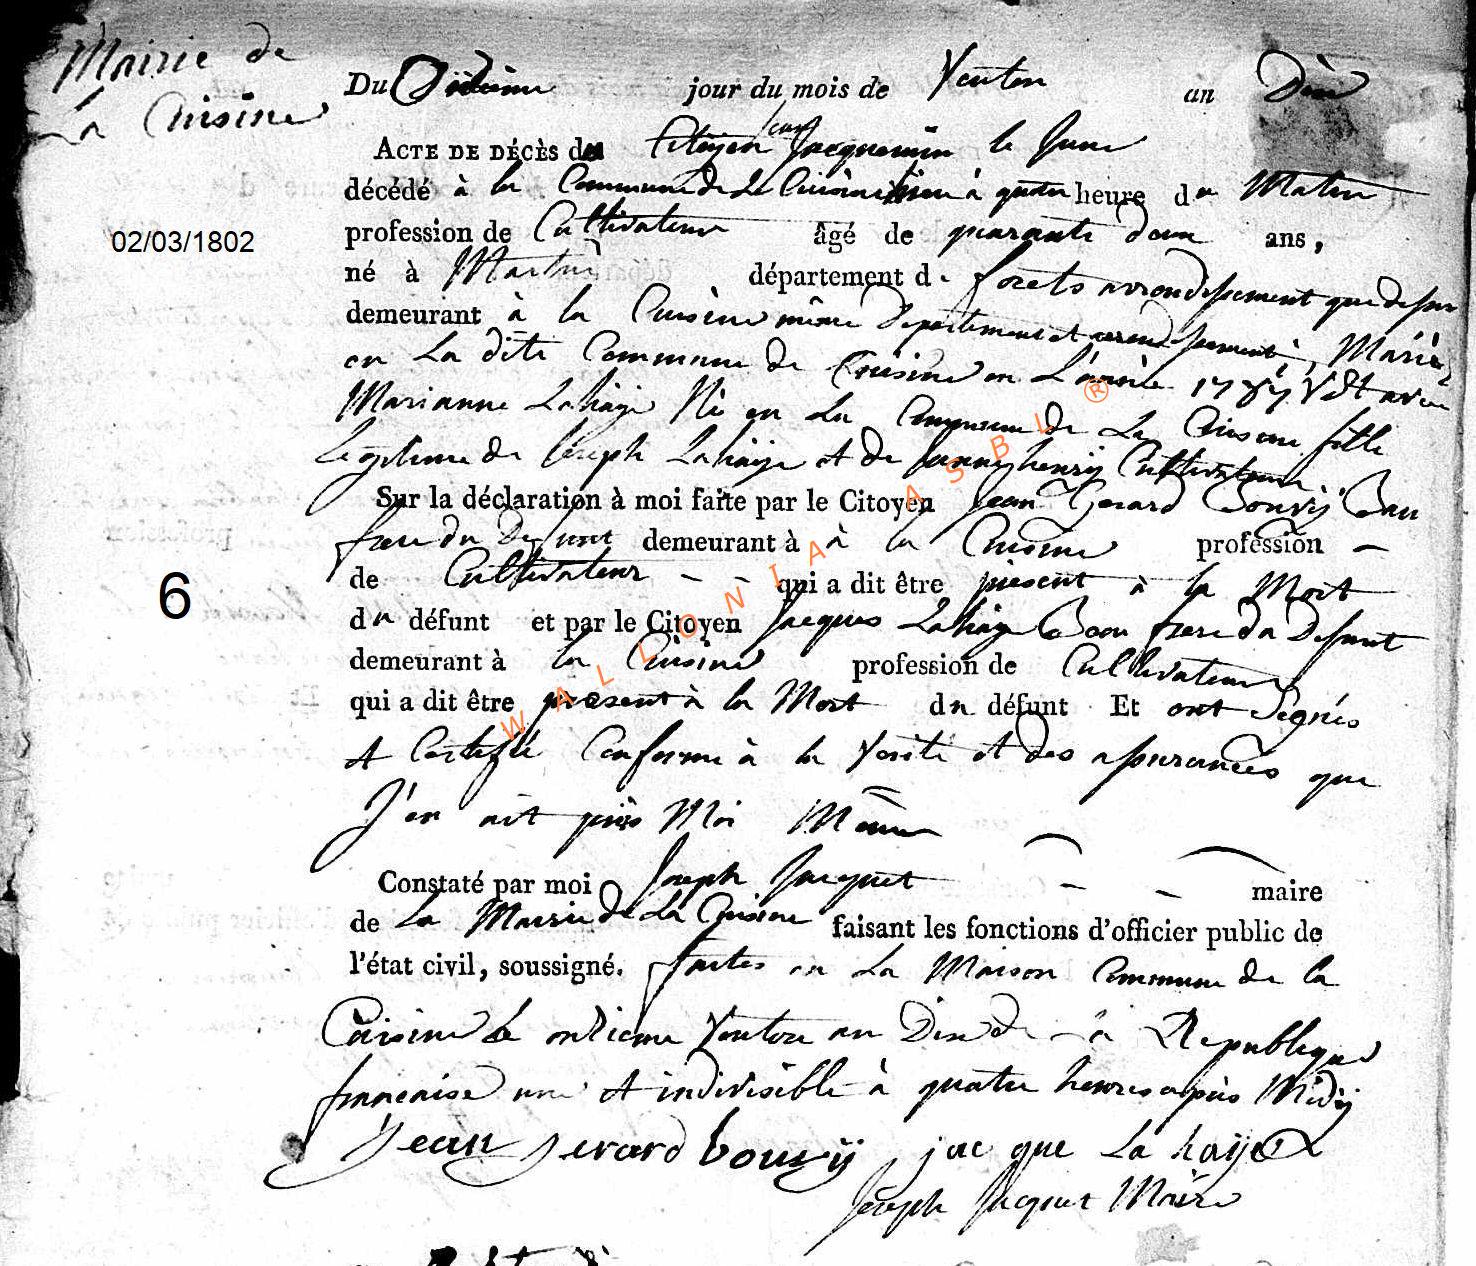 Mairie de
La Cuisine
Du Dixieme jour du mois de Ventos an Dix
ACTE DE DÉCÈS du Citoyen Jacquemin le Jeune
décédé à la Commune de La Cuisine à quatre heure du Matin
02/03/1802
profession de Cultivateur âgé de quarante deux ans,
né à département de forets arrondissement que dessus
demeurant à la Cuisine même Departement et arrondissement, Marié
en La dite Commune de Cuisine en L'année 1787 avec
Marianne Lahaije Né en La Commune de La Cuisine fille
Legitime de Joseph Lahaije et de Jeanne henrij Cultivateur
Sur la déclaration à moi faite par le Citoyen Jean Gerard Bouvij Bau
frere du Defunt demeurant à à la Cuisine profession
6
de Cultivateur - - qui a dit être présent à la Mort
du défunt et par le Citoyen Jacques Lahaije Beau frere du Defunt
demeurant à la Cuisine profession de Cultivateur
qui a dit être present à la Mort du défunt Et ont Segnés
et Certifié Conforme à la Verité et des assurances que
J'en ait pris Moi Même
Constaté par moi Joseph Jacquet - - maire
de La Mairie de La Cuisine faisant les fonctions d'officier public de
l'état civil, soussigné. faites en La Maison Commune de la
Cuisine le onzieme Ventose an Dix de la Republique
française une et indivisible à quatre heures après Midij
jean gerard bouvij jac que La haije
Joseph Jacquet Maire
WALLONIA ASBL ®